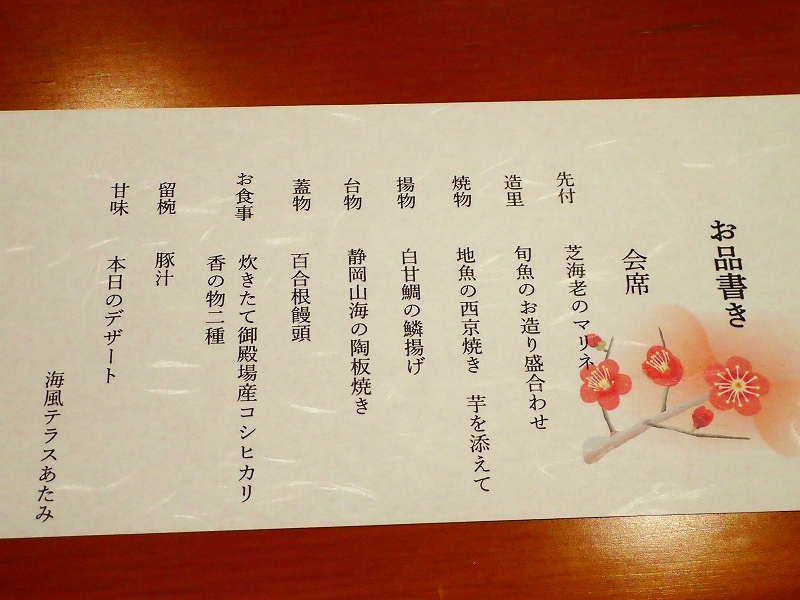 お品書き
会席
先付 芝海老のマリネ
造里 旬魚のお造り盛合わせ
焼物 地魚の西京焼き 芋を添えて
揚物 白甘鯛の鱗揚げ
台物 静岡山海の陶板焼き
蓋物 百合根饅頭
お食事 炊きたて御殿場産コシヒカリ
香の物二種
留椀 豚汁
甘味 本日のデザート
海風テラスあたみ